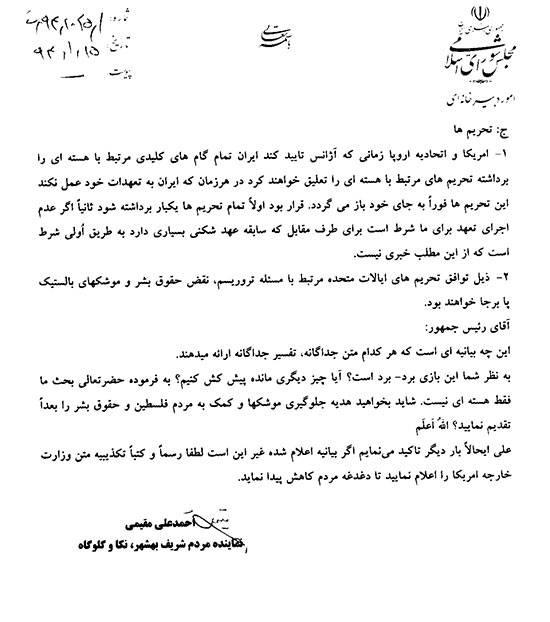 جمهوری اسلامی ایران
مجلس شورای اسلامی
امور دبیرخانه‌ای
باسمه تعالی
شماره:
تاریخ: ۹۴/۱/۱۵
پیوست
ج: تحریم ها
۱- امریکا و اتحادیه اروپا زمانی که آژانس تایید کند ایران تمام گام های کلیدی مرتبط با هسته ای را
برداشته تحریم های مرتبط با هسته ای را تعلیق خواهند کرد در هرزمان که ایران به تعهدات خود عمل نکند
این تحریم ها فوراً به جای خود باز می گردد. قرار بود اولاً تمام تحریم ها یکبار برداشته شود ثانیاً اگر عدم
اجرای تعهد برای ما شرط است برای طرف مقابل که سابقه عهد شکنی بسیاری دارد به طریق اُولی شرط
است که از این مطلب خبری نیست.
۲- ذیل توافق تحریم های ایالات متحده مرتبط با مسئله تروریسم، نقض حقوق بشر و موشکهای بالستیک
پا برجا خواهند بود.
آقای رئیس جمهور:
این چه بیانیه ای است که هر کدام متن جداگانه، تفسیر جداگانه ارائه میدهند.
به نظر شما این بازی برد- برد است؟ آیا چیز دیگری مانده پیش کش کنیم؟ به فرموده حضرتعالی بحث ما
فقط هسته ای نیست. شاید بخواهید هدیه جلوگیری موشکها و کمک به مردم فلسطین و حقوق بشر را بعداً
تقدیم نمایید؟ اللهُ اَعلَم
علی ایحالاً بار دیگر تاکید می‌نمایم اگر بیانیه اعلام شده غیر این است لطفا رسماً و کتباً تکذیبیه متن وزارت
خارجه امریکا را اعلام نمایید تا دغدغه مردم کاهش پیدا نماید.
احمدعلی مقیمی
نماینده مردم شریف بهشهر، نکا و گلوگاه